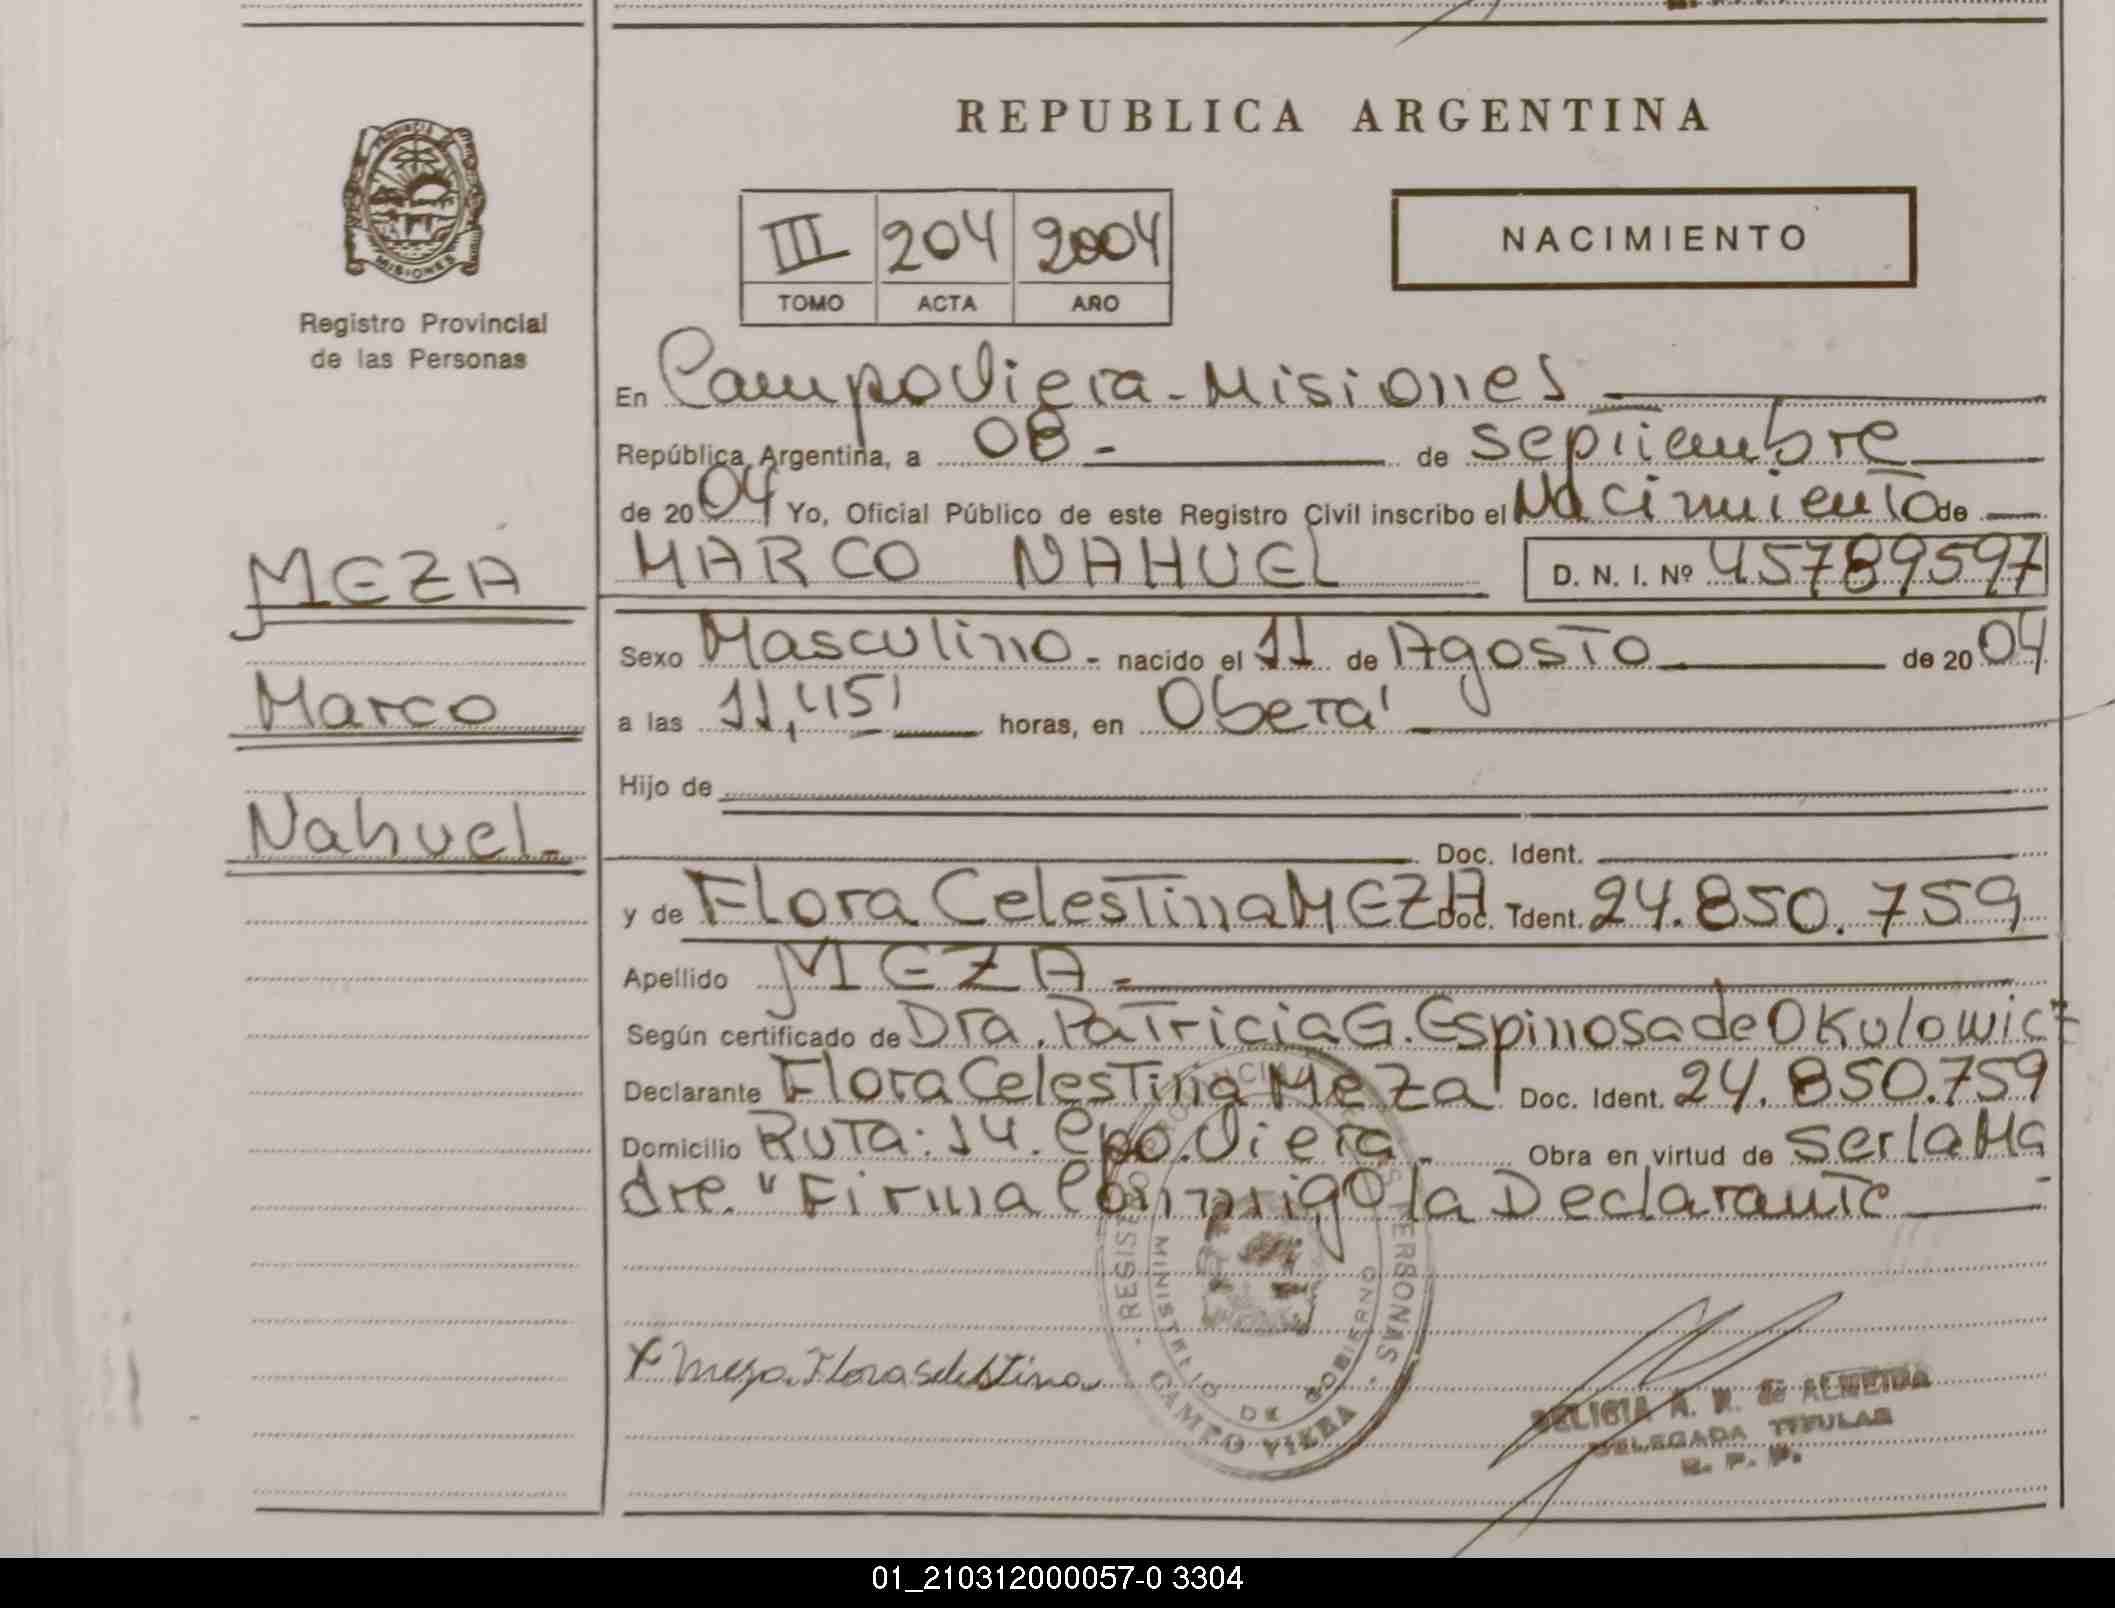 REPUBLICA ARGENTINA
PROVINCIA
MISIONES
Registro Provincial
de las Personas
III 204 2004
TOMO ACTA AÑO
NACIMIENTO
En Campo Viera - Misiones
República Argentina, a 08 - de septiembre
de 2004 Yo, Oficial Público de este Registro Civil inscribo el Nacimiento de
MEZA
MARCO NAHUEL D. N. I. Nº 45789597
Sexo Masculino - nacido el 11 de Agosto de 2004
Marco
a las 11,45' horas, en Oberá
Hijo de
Nahuel.-
Doc. Ident.
y de Flora Celestina MEZA Doc. Ident. 24.850.759
Apellido MEZA -
Según certificado de Dra. Patricia G. Espinosa de Okulowicz
Declarante Flora Celestina Meza Doc. Ident. 24.850.759
Domicilio Ruta: 14. Cpo. Viera. Obra en virtud de ser la Ma
dre. "Firma Conmigo la Declarante
REGISTRO PROVINCIAL DE LAS PERSONAS
MINISTERIO DE GOBIERNO
- CAMPO VIERA -
x Meza Flora Selestina
DELICIA A. R. de ALMEIDA
DELEGADA TITULAR
R. P. P.
01_210312000057-0 3304